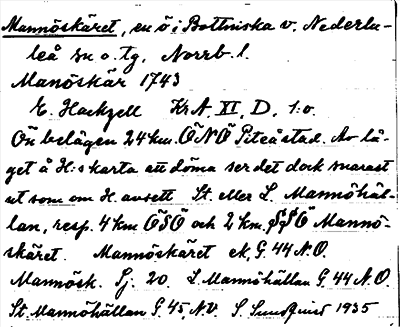 Mannöskäret, en ö i Bottniska v. Nederlu-
leå sn o. tg, Norrb. l.
Manöskär 1743
E. Hackzell KrA XI, D, 1:o.
Ön belägen 24 km. ÖNÖ Piteå stad. Av lä-
get å H:s karta att döma ser det dock snarast
ut som om H. avsett St. eller L. Mannöhäl-
lan, resp. 4 km ÖSÖ och 2 km. SSÖ Mannö-
skäret. Mannöskäret ek. G. 44 N.O.
Mannösk. Sj. 20. L. Mannöhällan G. 44 N.O.
St. Mannöhällan G. 45, N.V. S. Sundqvist 1935